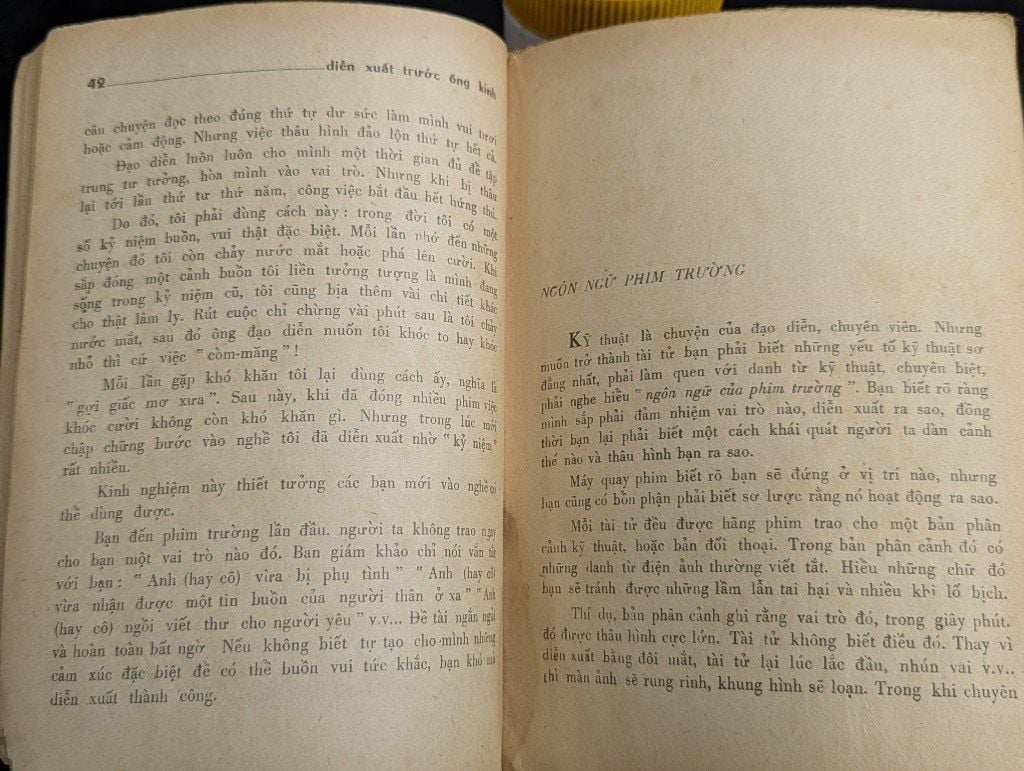 42 diễn xuất trước ống kính
câu chuyện đọc theo đúng thứ tự dư sức làm mình vui tươi
hoặc cảm động. Nhưng việc thâu hình đảo lộn thứ tự hết cả.
Đạo diễn luôn luôn cho mình một thời gian đủ để tập
trung tư tưởng, hòa mình vào vai trò. Nhưng khi bị thâu
lại tới lần thứ tư thứ năm, công việc bắt đầu hết hứng thú.
Do đó, tôi phải dùng cách này : trong đời tôi có một
số kỷ niệm buồn, vui thật đặc biệt. Mỗi lần nhớ đến những
chuyện đó tôi còn chảy nước mắt hoặc phá lên cười. Khi
sắp đóng một cảnh buồn tôi liền tưởng tượng là mình đang
sống trong kỷ niệm cũ, tôi cũng bịa thêm vài chi tiết khác
cho thật lâm ly. Rút cuộc chỉ chừng vài phút sau là tôi chảy
nước mắt, sau đó ông đạo diễn muốn tôi khóc to hay khóc
nhỏ thì cứ việc “ còm-măng ” !
Mỗi lần gặp khó khăn tôi lại dùng cách ấy, nghĩa là
“ gợi giấc mơ xưa ”. Sau này, khi đã đóng nhiều phim việc
khóc cười không còn khó khăn gì. Nhưng trong lúc mới
chập chững bước vào nghề tôi đã diễn xuất nhờ “ kỷ niệm ”
rất nhiều.
Kinh nghiệm này thiết tưởng các bạn mới vào nghề có
thể dùng được.
Bạn đến phim trường lần đầu. người ta không trao ngay
cho bạn một vai trò nào đó. Ban giám khảo chỉ nói vắn tắt
với bạn : “ Anh (hay cô) vừa bị phụ tình ” “ Anh (hay cô)
vừa nhận được một tin buồn của người thân ở xa ” “ Anh
(hay cô) ngồi viết thư cho người yêu ” v.v... Đề tài ngắn ngủi
và hoàn toàn bất ngờ Nếu không biết tự tạo cho mình những
cảm xúc đặc biệt để có thể buồn vui tức khắc, bạn khó mà
diễn xuất thành công.
NGÔN NGỮ PHIM TRƯỜNG
Kỹ thuật là chuyện của đạo diễn, chuyên viên. Nhưng
muốn trở thành tài tử bạn phải biết những yếu tố kỹ thuật sơ
đẳng nhất, phải làm quen với danh từ kỹ thuật, chuyên biệt,
phải nghe hiểu “ ngôn ngữ của phim trường ”. Bạn biết rõ ràng
mình sắp phải đảm nhiệm vai trò nào, diễn xuất ra sao, đồng
thời bạn lại phải biết một cách khái quát người ta dàn cảnh
thế nào và thâu hình bạn ra sao.
Máy quay phim biết rõ bạn sẽ đứng ở vị trí nào, nhưng
bạn cũng có bổn phận phải biết sơ lược rằng nó hoạt động ra sao.
Mỗi tài tử đều được hãng phim trao cho một bản phân
cảnh kỹ thuật, hoặc bản đối thoại. Trong bản phân cảnh đó có
những danh từ điện ảnh thường viết tắt. Hiểu những chữ đó
bạn sẽ tránh được những lầm lẫn tai hại và nhiều khi lố bịch.
Thí dụ, bản phân cảnh ghi rằng vai trò đó, trong giây phút.
đó được thâu hình cực lớn. Tài tử không biết điều đó. Thay vì
diễn xuất bằng đôi mắt, tài tử lại lúc lắc đầu, nhún vai v.v..
thì màn ảnh sẽ rung rinh, khung hình sẽ loạn. Trong khi chuyên